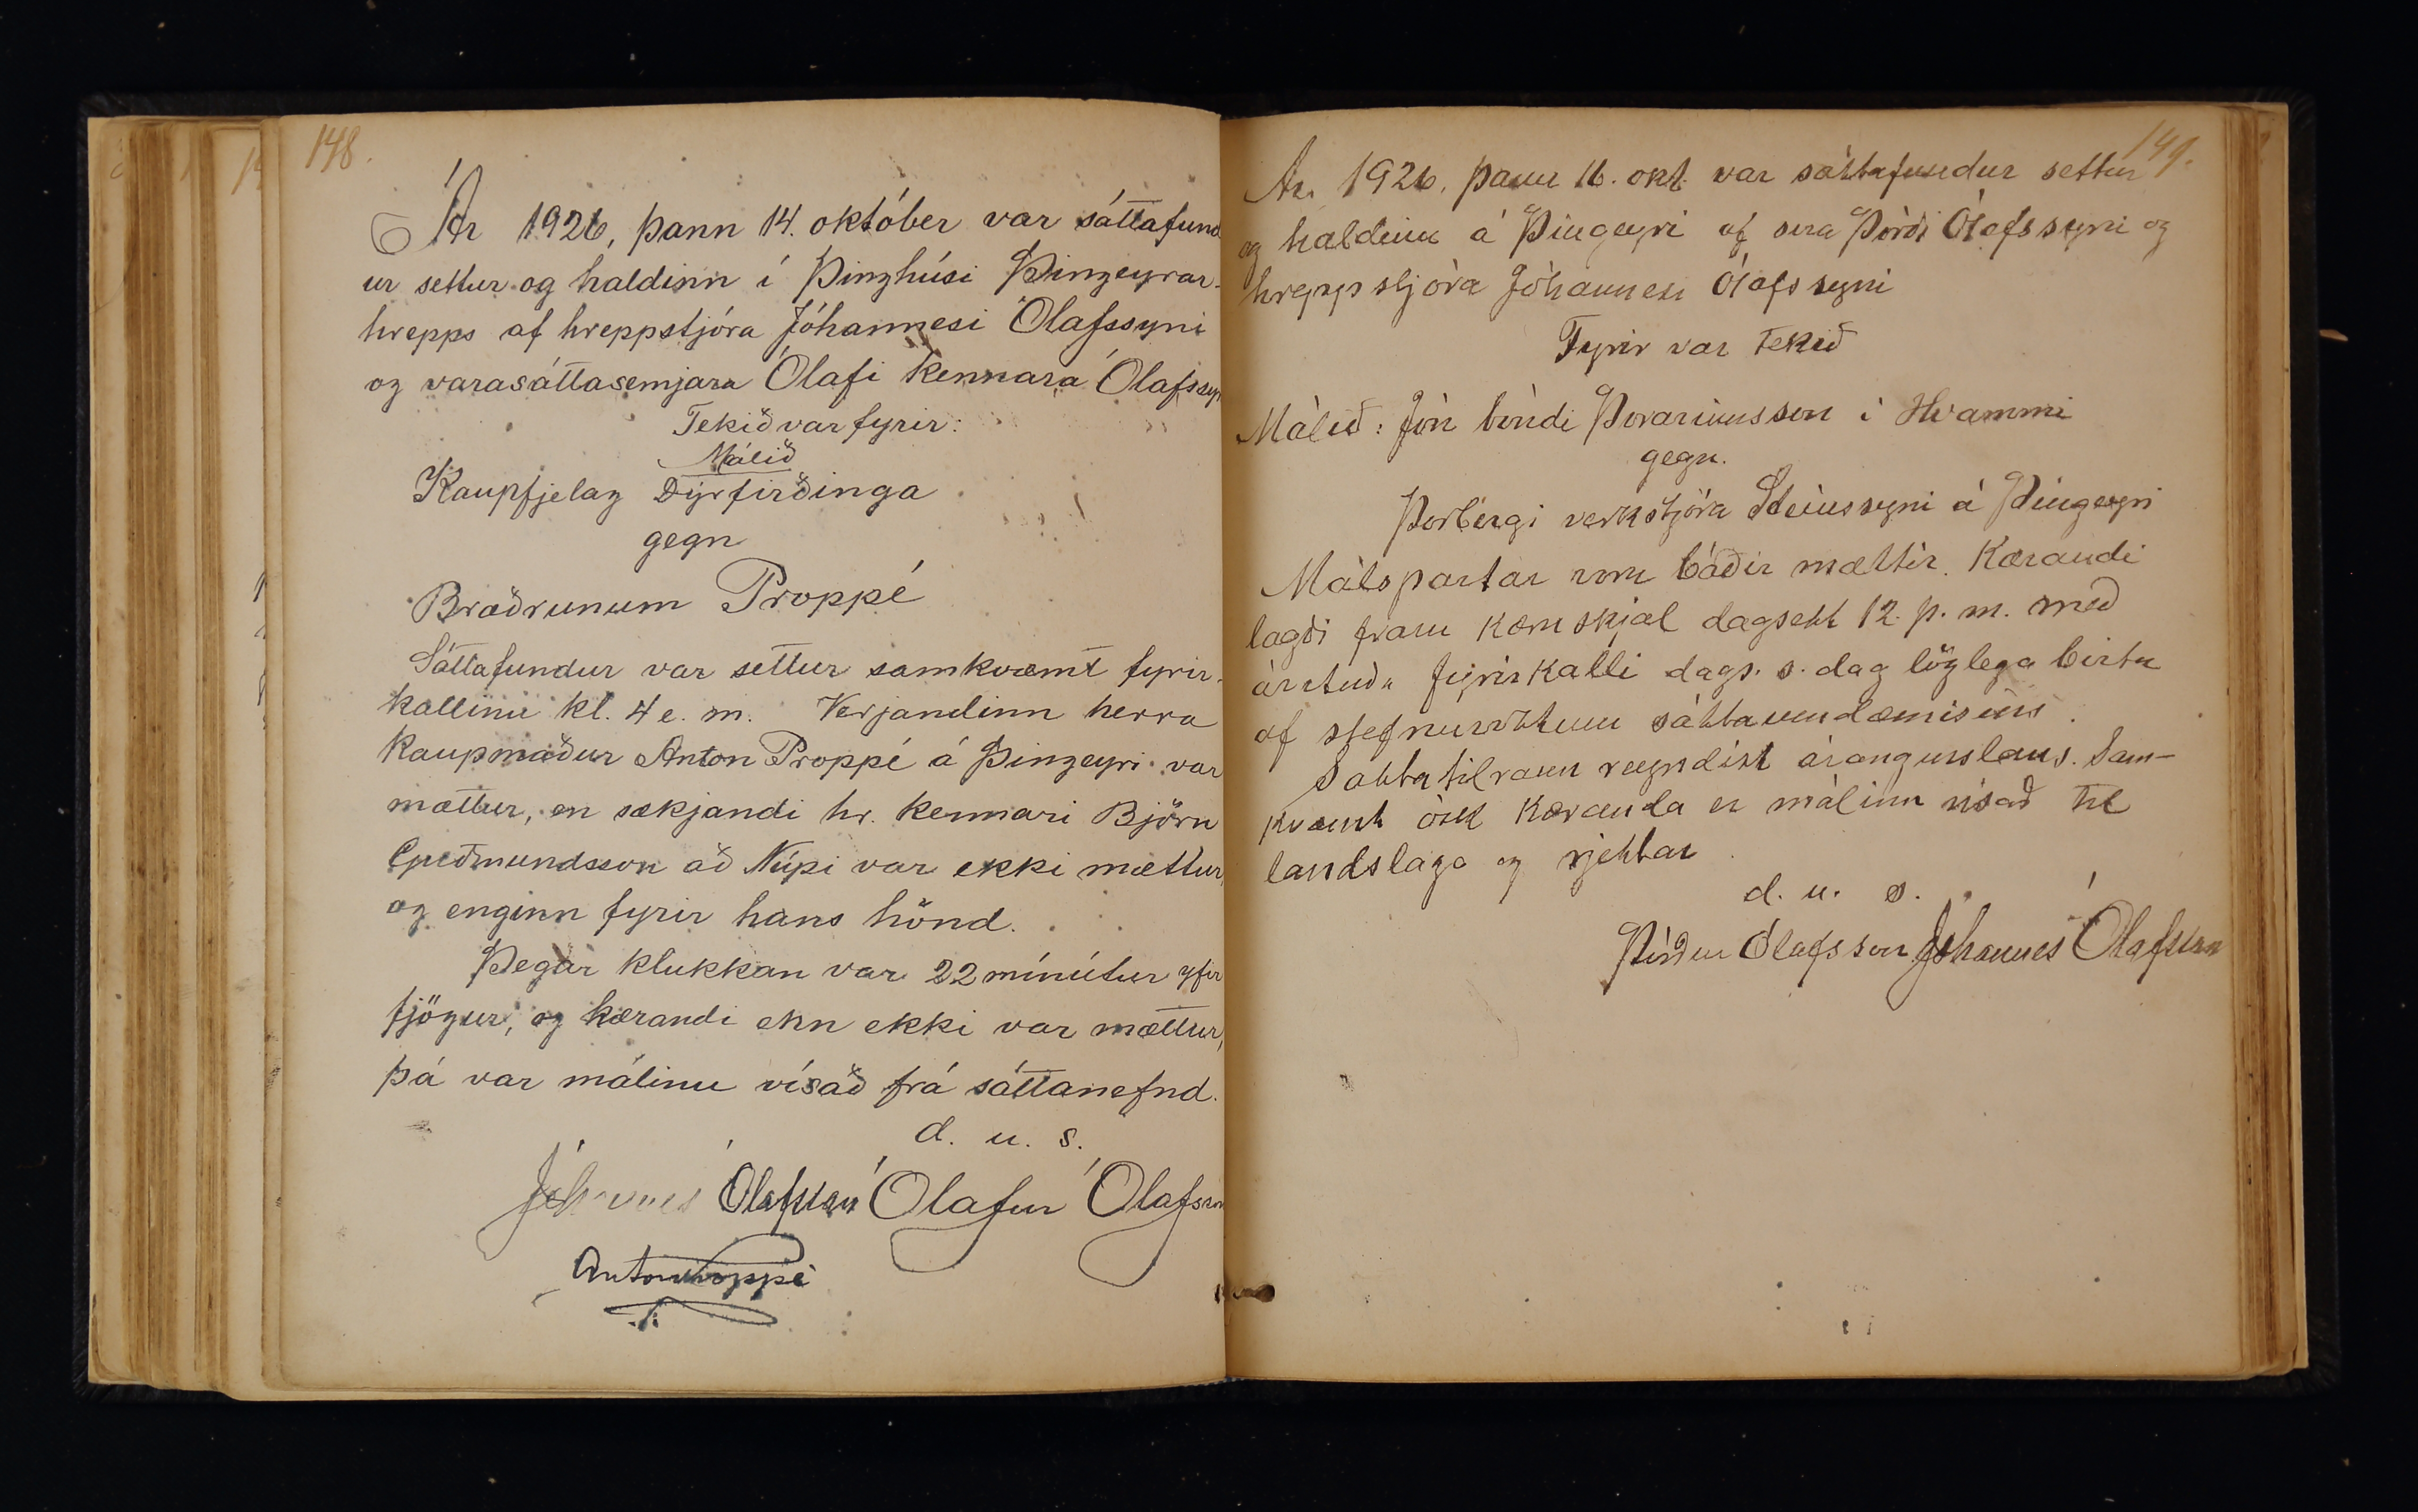 148.
Ár 1926, þann 14. október var sáttafund
ur settur og haldinn í Þinghúsi Þingeyrar-
hrepps af hreppstjóra Jóhannesi Ólafssyni
og varasáttasemjara Ólafi kennara Ólafssyn
Tekið var fyrir:
Málið
Kaupfjelag Dýrfirðinga
gegn
Bræðrunum Proppé
Sáttafundur var settur samkvæmt fyrir-
kallinu kl. 4 e. m. Verjandinn herra
kaupmaður Anton Proppé á Þingeyri var
mættur, en sækjandi hr. kennari Björn
Guðmundsson að Núpi var ekki mættur,
og enginn fyrir hans hönd.
Þegar klukkan var 22 mínútur yfir
fjögur, og kærandi enn ekki var mættur,
þá var málinu vísað frá sáttanefnd.
d. u. s.
Jóhannes Ólafsson Ólafur Ólafsson
Anton Proppé
149.
Ár 1926, þann 16. okt. var sáttafundur settur
og haldinn á Þingeyri af sira Þórði Ólafssyni og
hreppstjóra Jóhannesi Ólafssyni
Fyrir var tekið
Málið: Jón bóndi Þorarinnsson i Hvammi
gegn.
Þorbergi verkstjóra Steinssyni á Þingeyri
Málspartar voru báðir mættir. Kærandi
lagði fram kæruskjal dagsett 12. þ. m. með
árituðu fyrirkalli dags. s. dag löglega birtu
af stefnuvottum sáttaumdæmisins.
Sáttatilraun reyndist árangurslaus. Sam-
kvæmt ósk kæranda er málinu vísað til
landslaga og rjettar
d. u. s.
Þórður Ólafsson Jóhannes Ólafsson